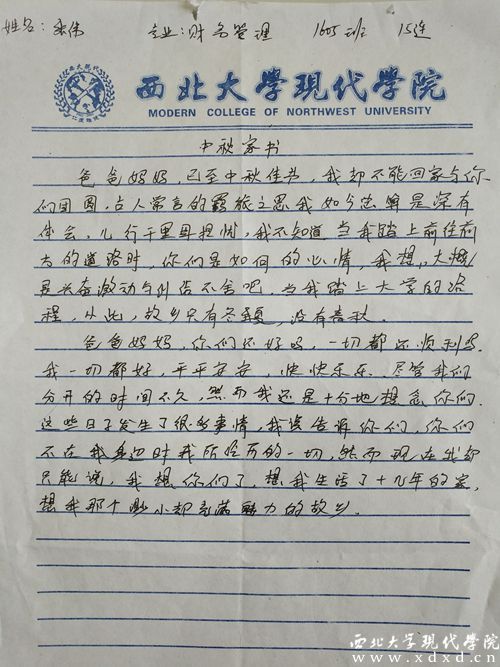 姓名:张伟 专业:财务管理 1605班 15连
西北大学现代学院
MODERN COLLEGE OF NORTHWEST UNIVERSITY
中秋家书
爸爸妈妈,已至中秋佳节,我却不能回家与你
们团圆,古人常言的羁旅之思我如今总算是深有
体会,儿行千里母担忧,我不知道当我踏上前往前
方的道路时,你们是如何的心情,我想,大概
是兴奋激动与不舍吧,当我踏上大学的路
程,从此,故乡只有冬夏,没有春秋。
爸爸妈妈,你们还好吗,一切都还顺利吗,
我一切都好,平平安安,快快乐乐。尽管我们
分开的时间不久,然而我还是十分地想念你们.
这些日子发生了很多事情,我该告诉你们,你们
不在我身边时我所经历的一切,然而现在我却
只能说,我想你们了,想我生活了十几年的家,
想我那个渺小却充满魅力的故乡。
西北大学现代学院
www.xdxd.cn